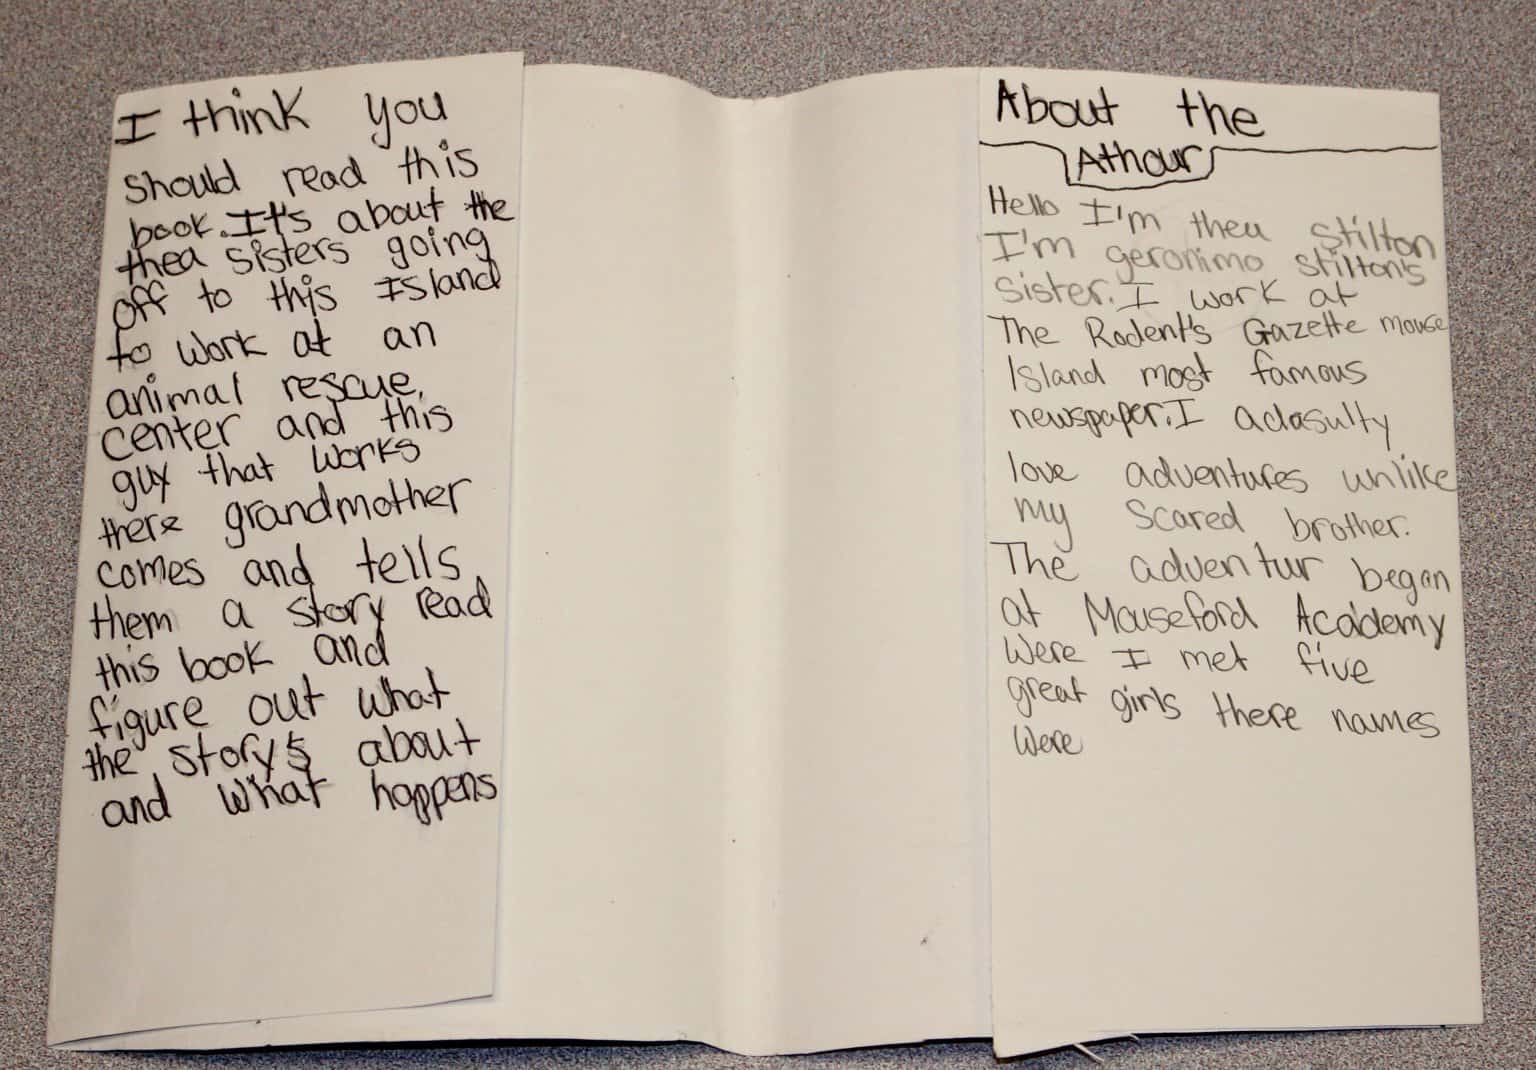 I think you
should read this
book. It's about the
thea sisters going
off to this Island
to work at an
animal rescue,
center and this
guy that works
there grandmother
comes and tells
them a story read
this book and
figure out what
the story's about
and what happens
About the
Athour
Hello I'm thea stilton
I'm geronimo stilton's
sister. I work at
The Rodent's Gazette mouse
Island most famous
newspaper. I adasulty
love adventures unlike
my scared brother.
The adventur began
at Mouseford Academy
Were I met five
great girls there names
were